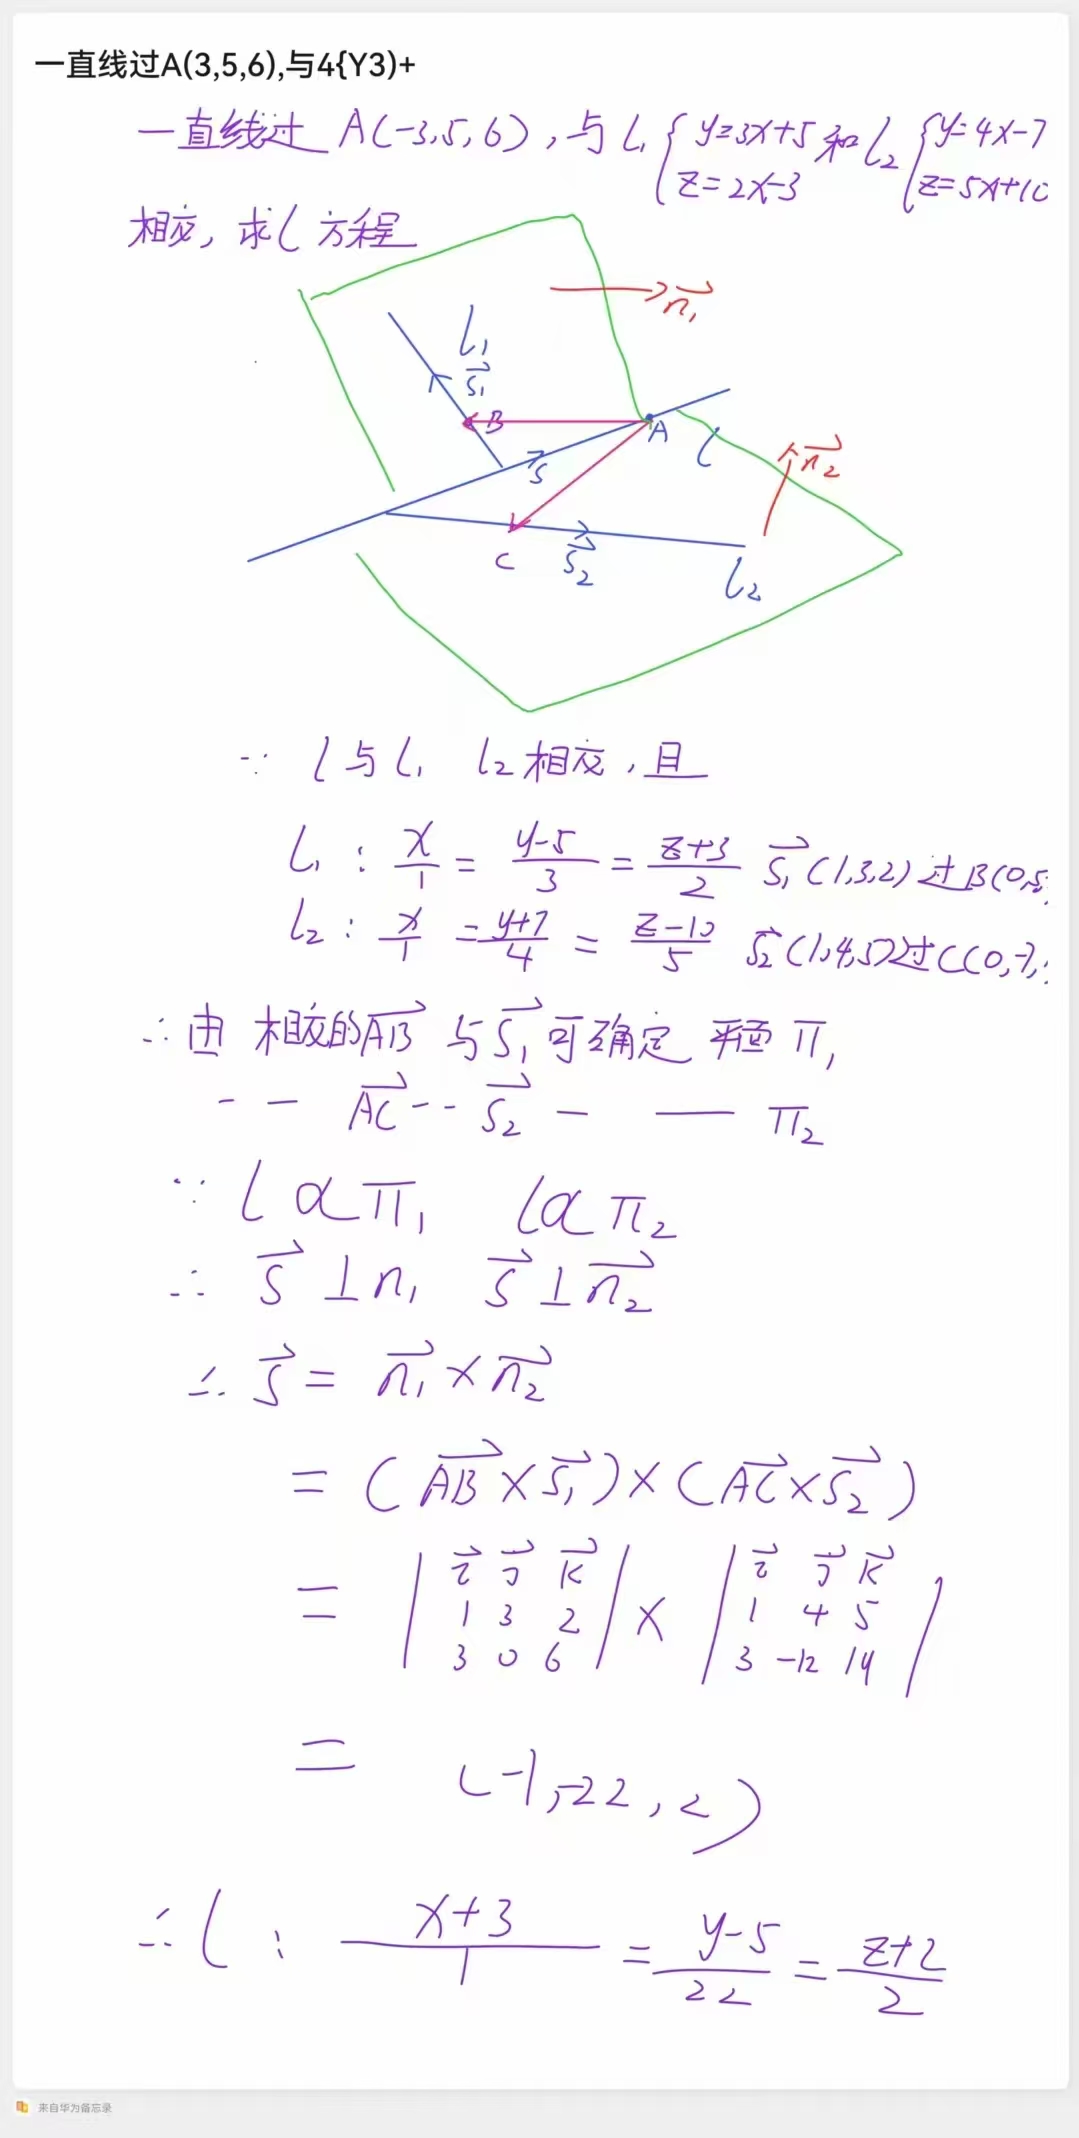 一直线过A(3,5,6),与4{Y3)+
一直线过 A(-3,5,6),与 l₁ { y=3x+5 和 l₂ { y=4x-7
z=2x-3 z=5x+10
相交,求 l 方程
n₁
l₁
s₁
B
A
l
n₂
s
C
s₂
l₂
∵ l 与 l₁ l₂ 相交,且
l₁ : x/1 = (y-5)/3 = (z+3)/2 s₁(1,3,2) 过B(0,5,
l₂ : x/1 = (y+7)/4 = (z-10)/5 s₂(1,4,5)过C(0,-7,
∴ 由 相交的AB 与 s₁ 可确定 平面 π₁
- — AC -- s₂ — — π₂
∵ l α π₁ l α π₂
∴ s ⊥ n₁ s ⊥ n₂
∴ s = n₁ × n₂
= (AB × s₁) × (AC × s₂)
= | i j k | × | i j k |
1 3 2 1 4 5
3 0 6 3 -12 14
= (-1,-22,2)
∴ l : (x+3)/1 = (y-5)/22 = (z+2)/2
来自华为备忘录